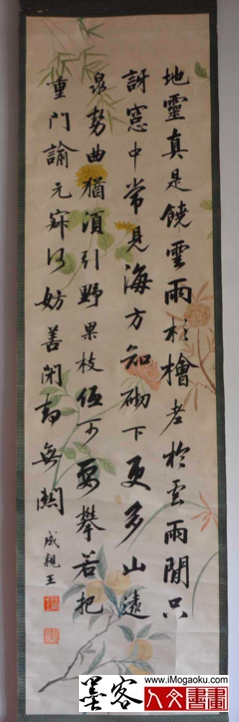 地靈真是饒雲雨杉檜老於雲雨間只
訝窓中常見海方知砌下更多山遠
泉勢曲猶須引野果枝低可要攀若把
重門諭元寂何妨善閉却無關
成親王
www.iMogaoku.com
墨客人文書畫